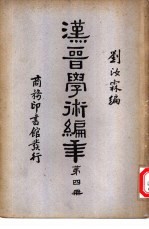 劉汝霖編
漢晉學術編年
第四冊
商務印書館發行